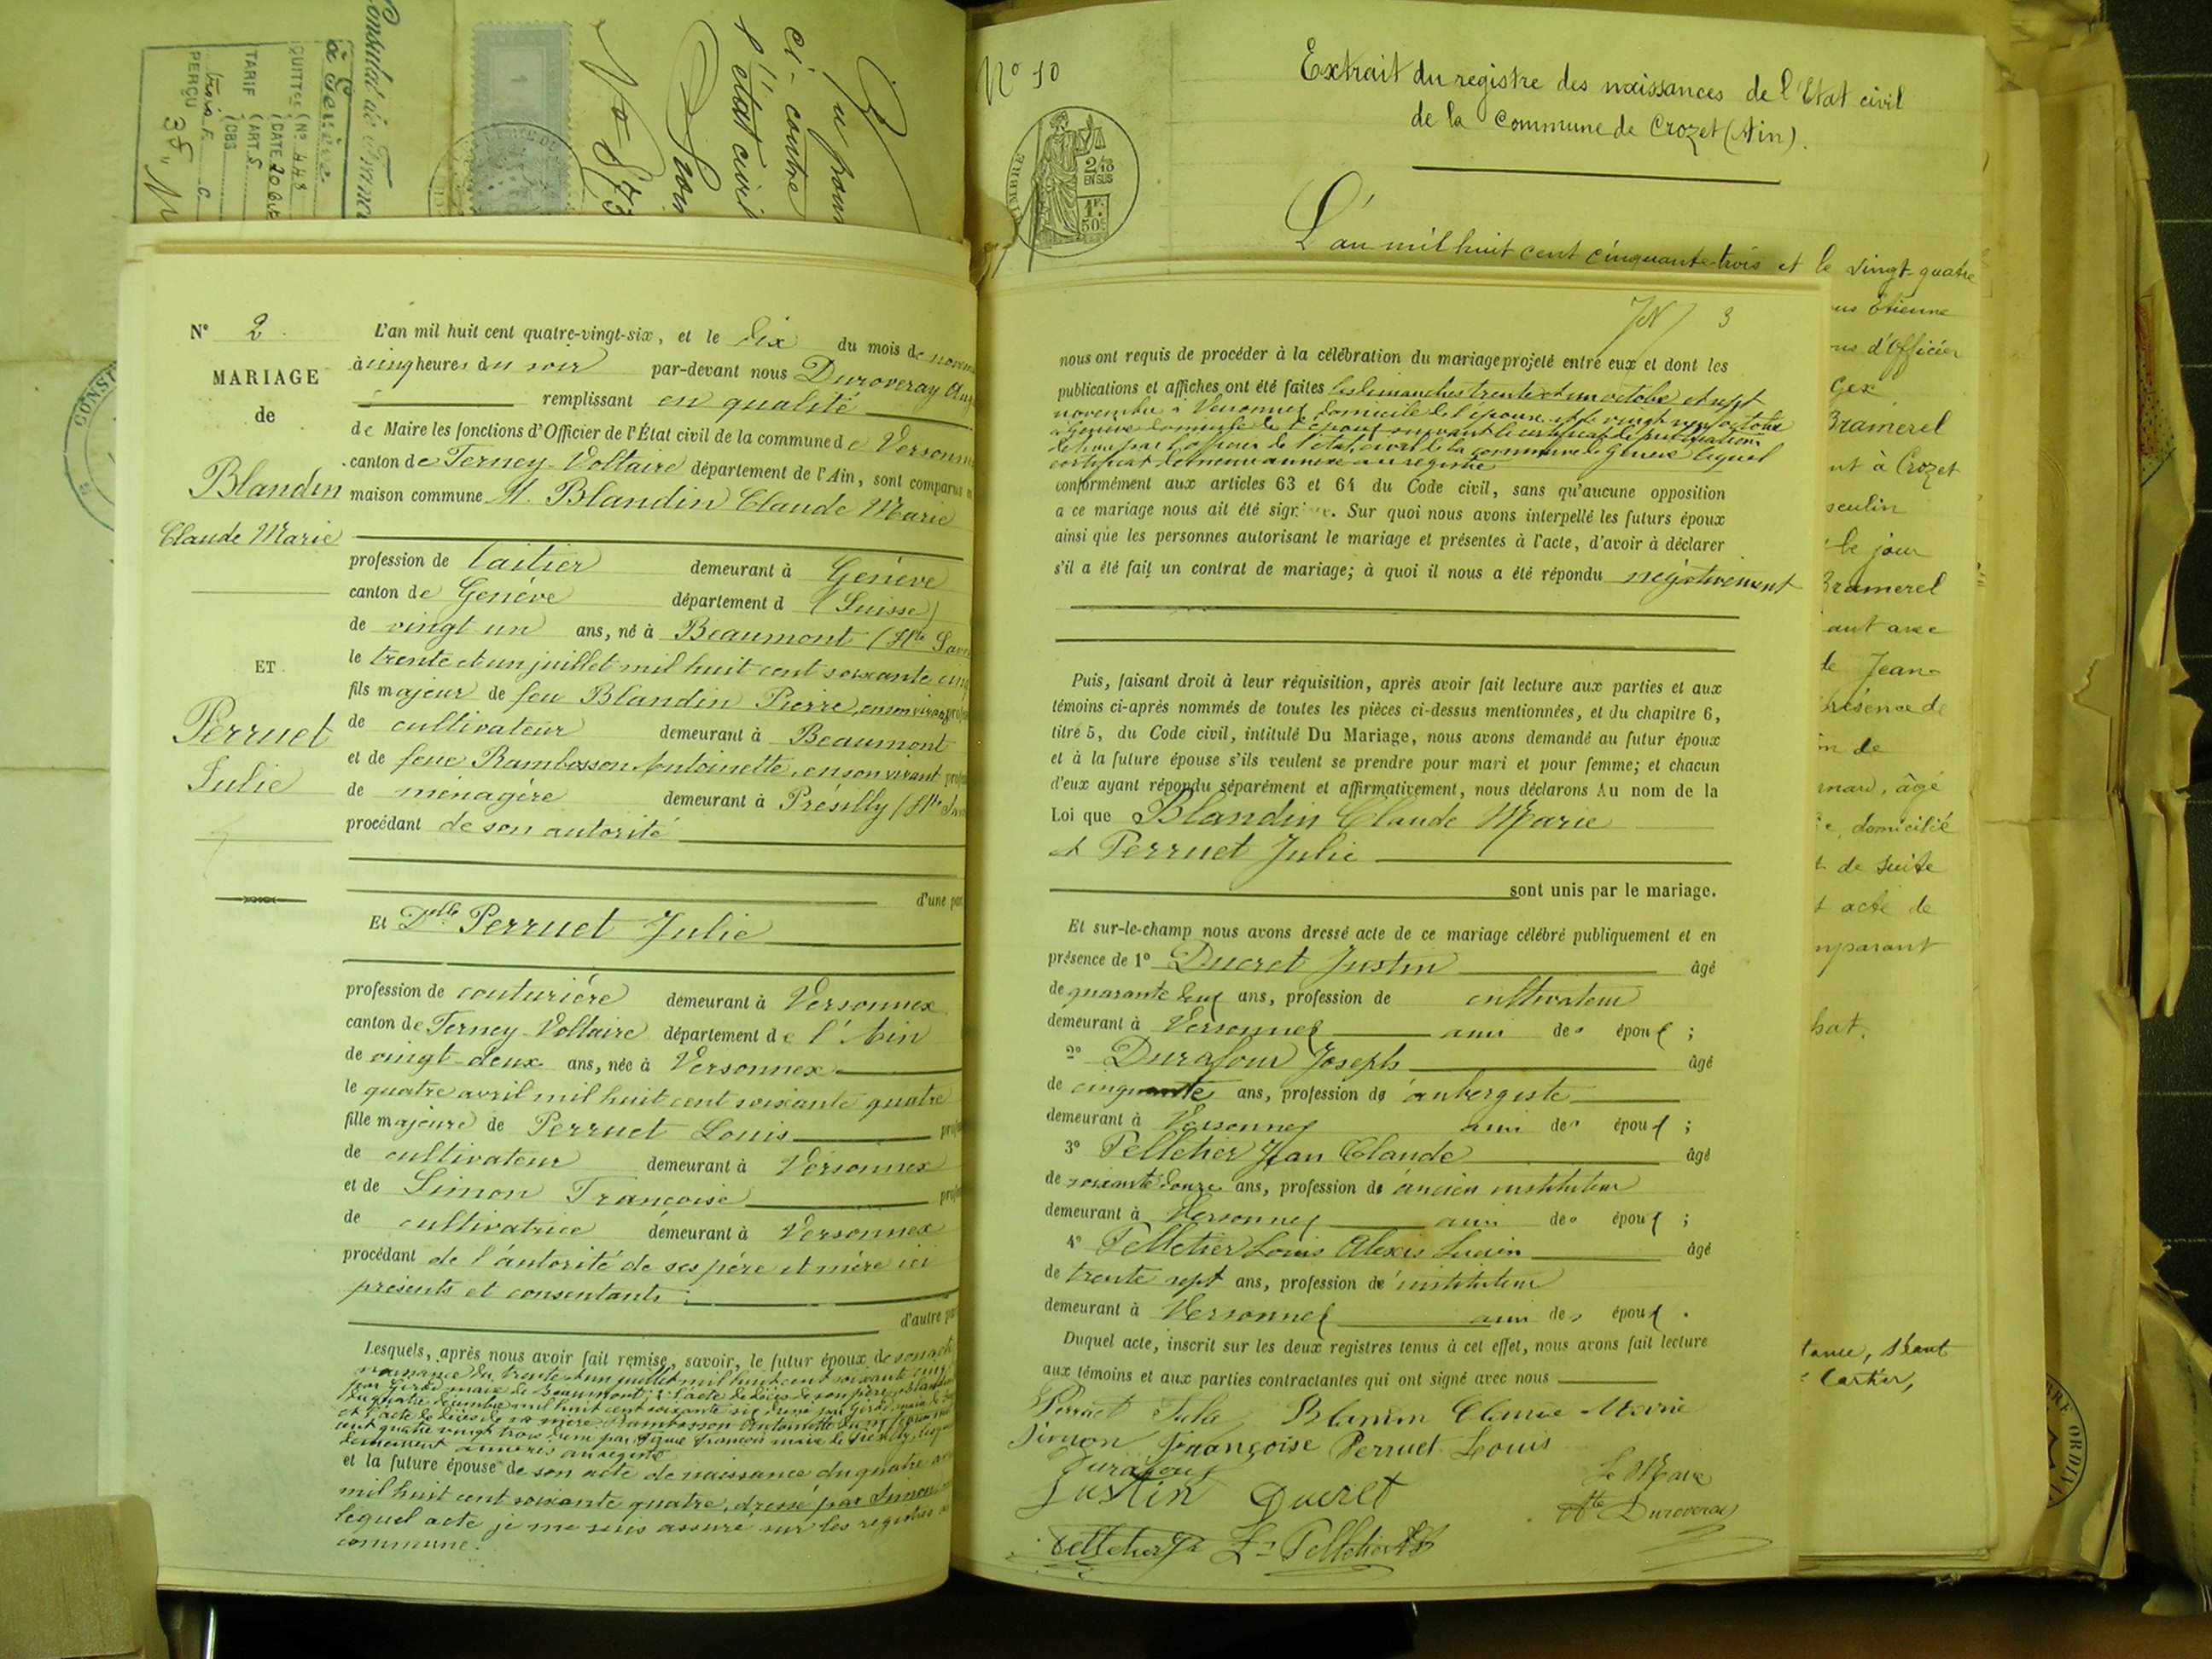 Consulat de France
à Genève
QUITTCE (No 448
(DATE 20
TARIF (ART. 5
(OBS.
trois F. C
PERÇU
ci-contre
l'état civil
1
No 10
Extrait du registre des naissances de l'Etat civil
de la Commune de Crozet (Ain).
TIMBRE
2/10
EN SUS
1F.
50c
L'an mil huit cent cinquante-trois et le vingt-quatre
No 2.
MARIAGE
de
Blandin
Claude Marie
ET
Perruet
Julie
L'an mil huit cent quatre-vingt-six, et le dix du mois de
à cinq heures du soir par-devant nous Duroveray
remplissant en qualité
de Maire les fonctions d'Officier de l'État civil de la commune de
canton de Ferney-Voltaire département de l'Ain, sont comparus
maison commune M. Blandin Claude Marie
profession de laitier demeurant à Genève
canton de Genève département d (Suisse)
de vingt un ans, né à Beaumont (Hte
le trente et un juillet mil huit cent soixante cinq
fils majeur de feu Blandin Pierre, en son vivant
de cultivateur demeurant à Beaumont
et de feue Rambosson Antoinette, en son vivant
de ménagère demeurant à Présilly (Hte
procédant de son autorité
d'une
Et Dlle Perruet Julie
profession de couturière demeurant à Versonnex
canton de Ferney-Voltaire département de l'Ain
de vingt-deux ans, née à Versonnex
le quatre avril mil huit cent soixante quatre
fille majeure de Perruet Louis
de cultivateur demeurant à Versonnex
et de Simon Françoise
de cultivatrice demeurant à Versonnex
procédant de l'autorité de ses père et mère ici
présents et consentants.
d'autre
Lesquels, après nous avoir fait remise, savoir, le futur époux de son acte
naissance du trente et un juillet mil huit cent soixante cinq
par Girod maire de Beaumont; l'acte de décès de son père
du quatre décembre mil huit cent soixante six
et l'acte de décès de sa mère Rambosson Antoinette
demeurent annexés au registre
et la future épouse de son acte de naissance du quatre
mil huit cent soixante quatre, dressé par Simon
lequel acte je me suis assuré sur les registres
commune.
3
nous ont requis de procéder à la célébration du mariage projeté entre eux et dont les
publications et affiches ont été faites les dimanches trente et un octobre et sept
novembre à Versonnex domicile de l'épouse et le vingt neuf octobre
à Genève domicile de l'époux suivant le certificat de publication
délivré par l'officier de l'état civil de la commune de Genève lequel
certificat demeure annexé au registre
conformément aux articles 63 et 64 du Code civil, sans qu'aucune opposition
a ce mariage nous ait été Sur quoi nous avons interpellé les futurs époux
ainsi que les personnes autorisant le mariage et présentes à l'acte, d'avoir à déclarer
s'il a été fait un contrat de mariage; à quoi il nous a été répondu négativement
Puis, faisant droit à leur réquisition, après avoir fait lecture aux parties et aux
témoins ci-après nommés de toutes les pièces ci-dessus mentionnées, et du chapitre 6,
titre 5, du Code civil, intitulé Du Mariage, nous avons demandé au futur époux
et à la future épouse s'ils veulent se prendre pour mari et pour femme; et chacun
d'eux ayant répondu séparément et affirmativement, nous déclarons Au nom de la
Loi que Blandin Claude Marie
et Perruet Julie
sont unis par le mariage.
Et sur-le-champ nous avons dressé acte de ce mariage célébré publiquement et en
présence de 1o Ducret Justin âgé
de quarante deux ans, profession de cultivateur
demeurant à Versonnex ami des époux ;
2o Durafour Joseph âgé
de cinquante ans, profession d'aubergiste
demeurant à Versonnex ami des époux ;
3o Pelletier Jean Claude âgé
de soixante douze ans, profession d'ancien instituteur
demeurant à Versonnex ami des époux ;
4o Pelletier Louis Alexis Lucien âgé
de trente sept ans, profession d'instituteur
demeurant à Versonnex ami des époux .
Duquel acte, inscrit sur les deux registres tenus à cet effet, nous avons fait lecture
aux témoins et aux parties contractantes qui ont signé avec nous
Perruet Julie Blandin Claude Marie
Simon Françoise Perruet Louis
Durafour
Le Maire
Justin Ducret
Duroveray
Pelletier Ls Pelletier
Etienne
d'Officier
Gex
Bramerel
à Crozet
le jour
Bramerel
de Jean
présence de
âgé
domicilié
de suite
acte de
Cartier,